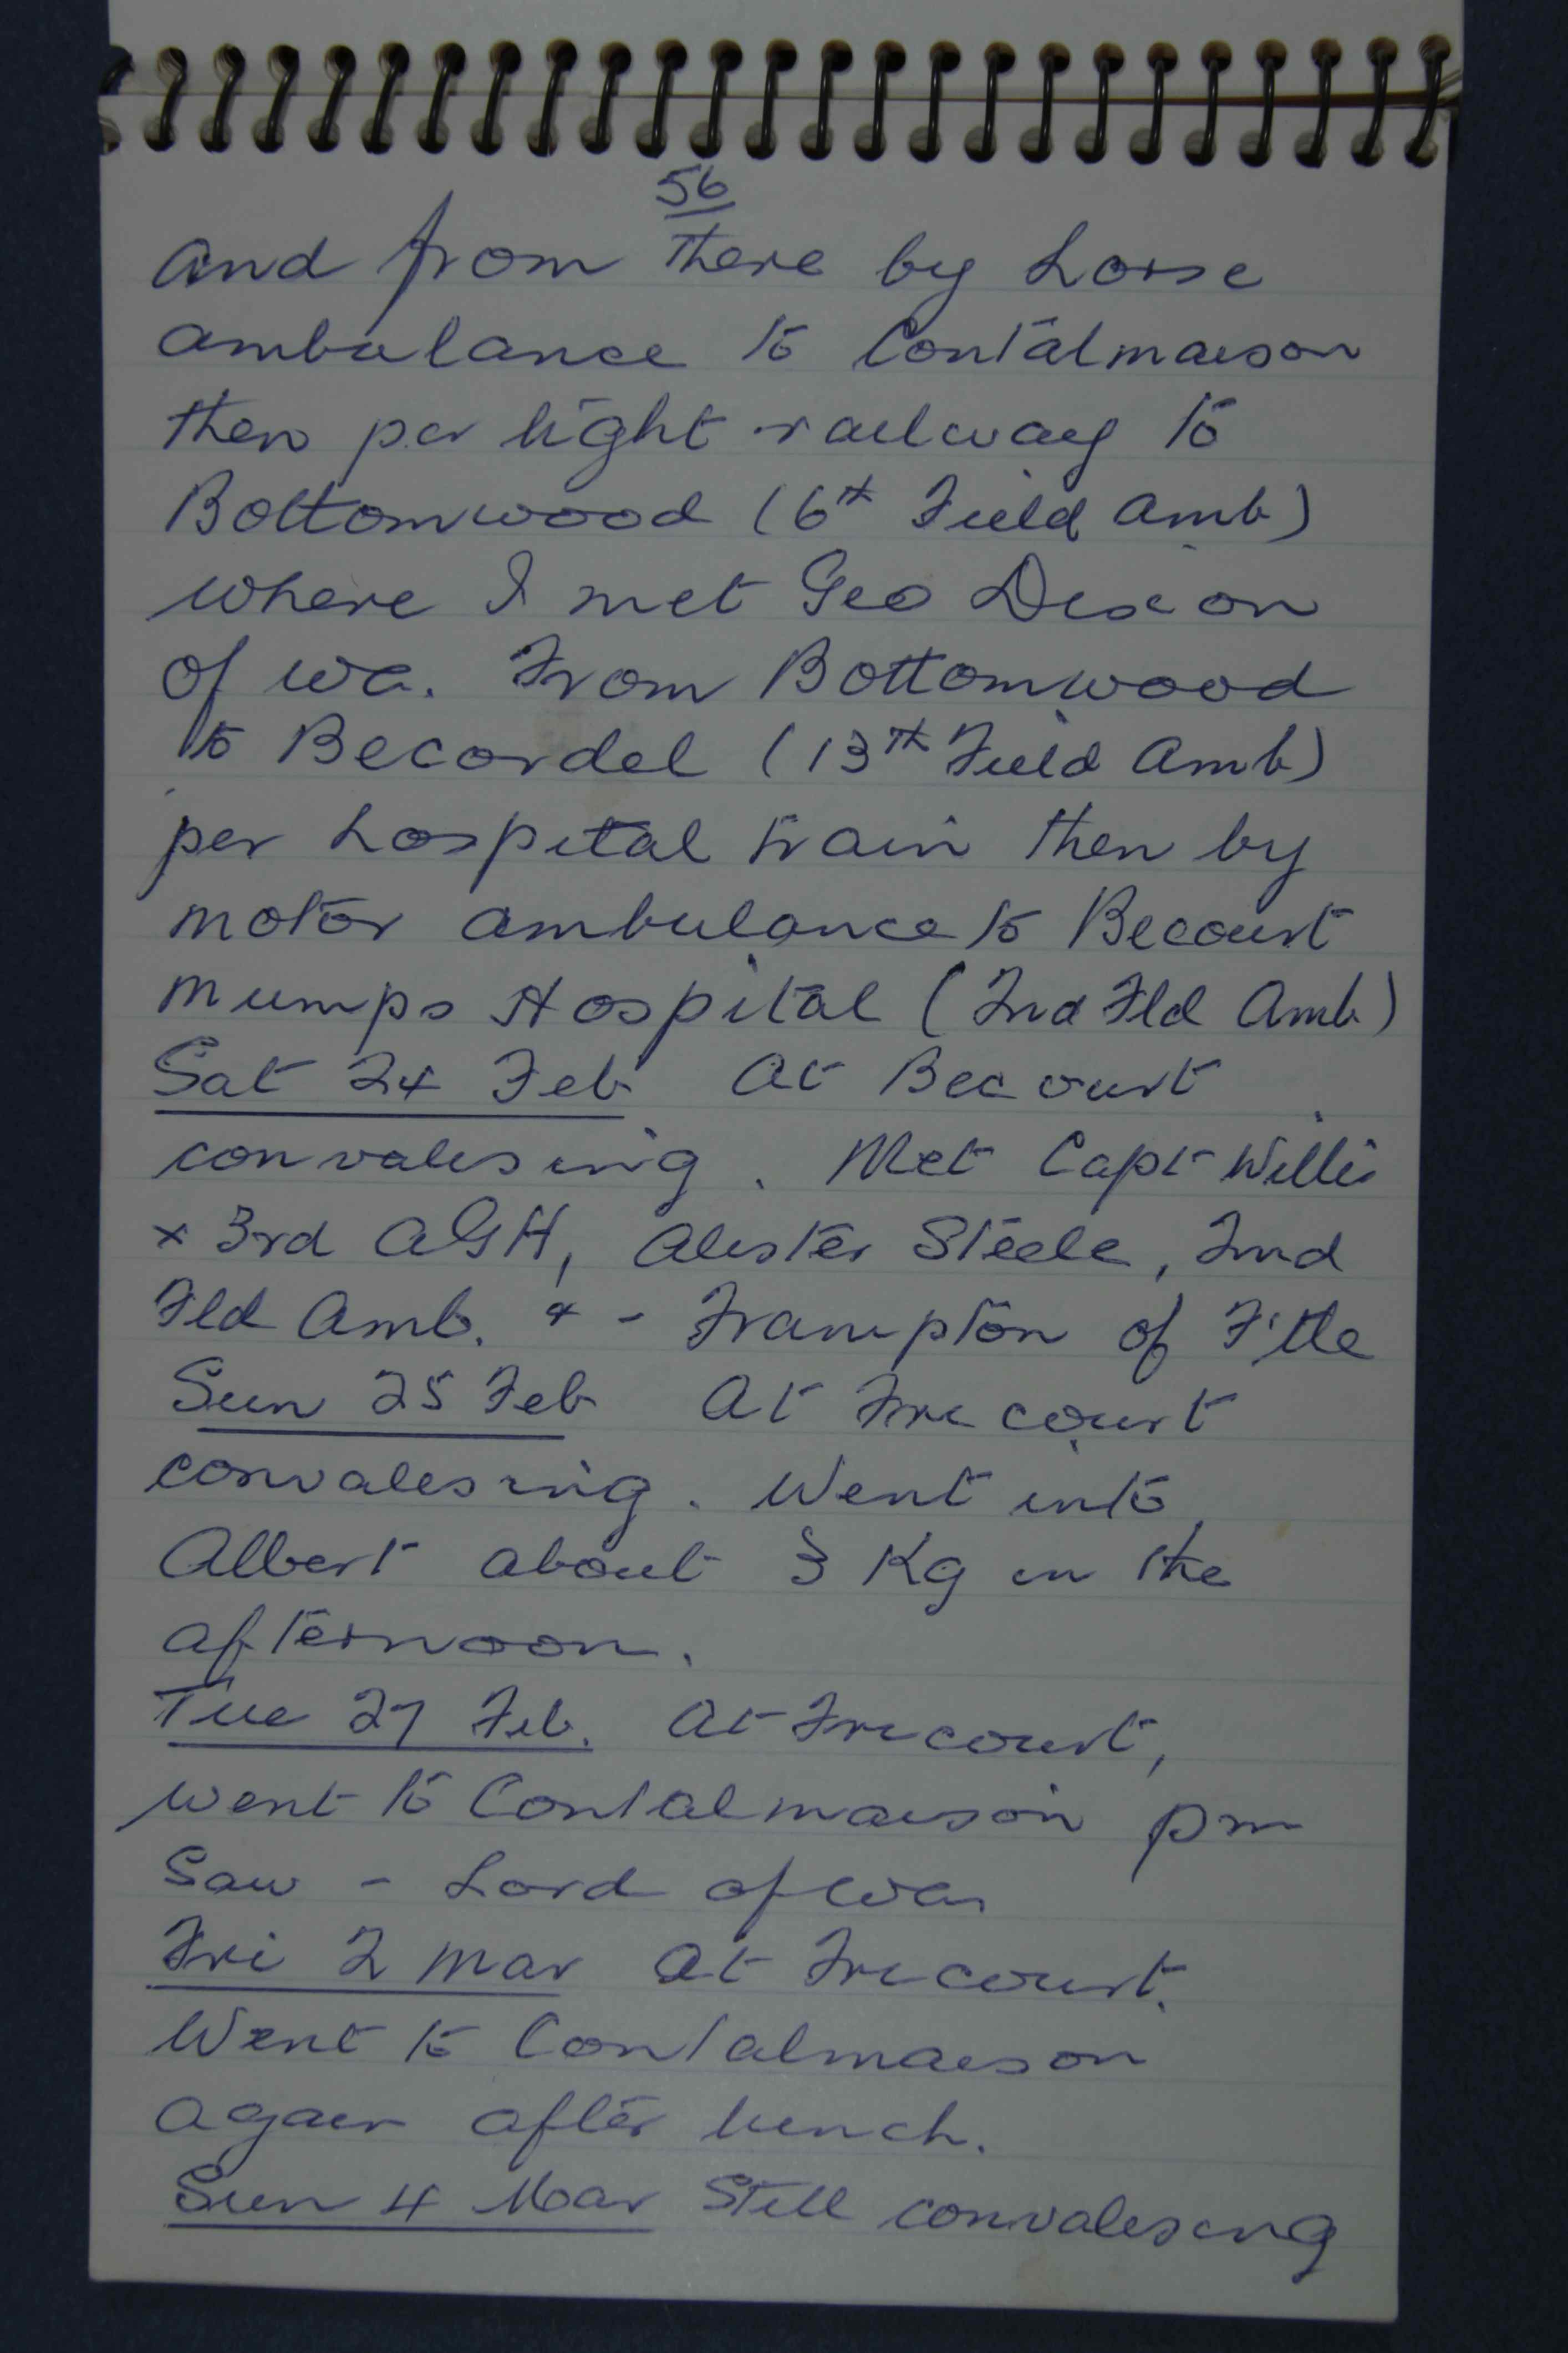 56
and from there by horse
ambulance to Contalmaison
then per light railway to
Bottomwood (6th Field Amb)
where I met Geo Dixon
of WA. From Bottomwood
to Becordel (13th Field Amb)
per hospital train then by
motor ambulance to Becourt
Mumps Hospital (2nd Fld Amb)
Sat 24 Feb At Becourt
convalesing. Met Capt Willis
x 3rd AGH, Alister Steele, 2nd
Fld Amb. & - Frampton of F'tle
Sun 25 Feb At Fricourt
convalesing. Went into
Albert about 3 Kg in the
afternoon.
Tue 27 Feb. At Fricourt,
went to Contalmaison pm
Saw - Lord of WA
Fri 2 Mar At Fricourt.
Went to Contalmaison
again after lunch.
Sun 4 Mar Still convalesing